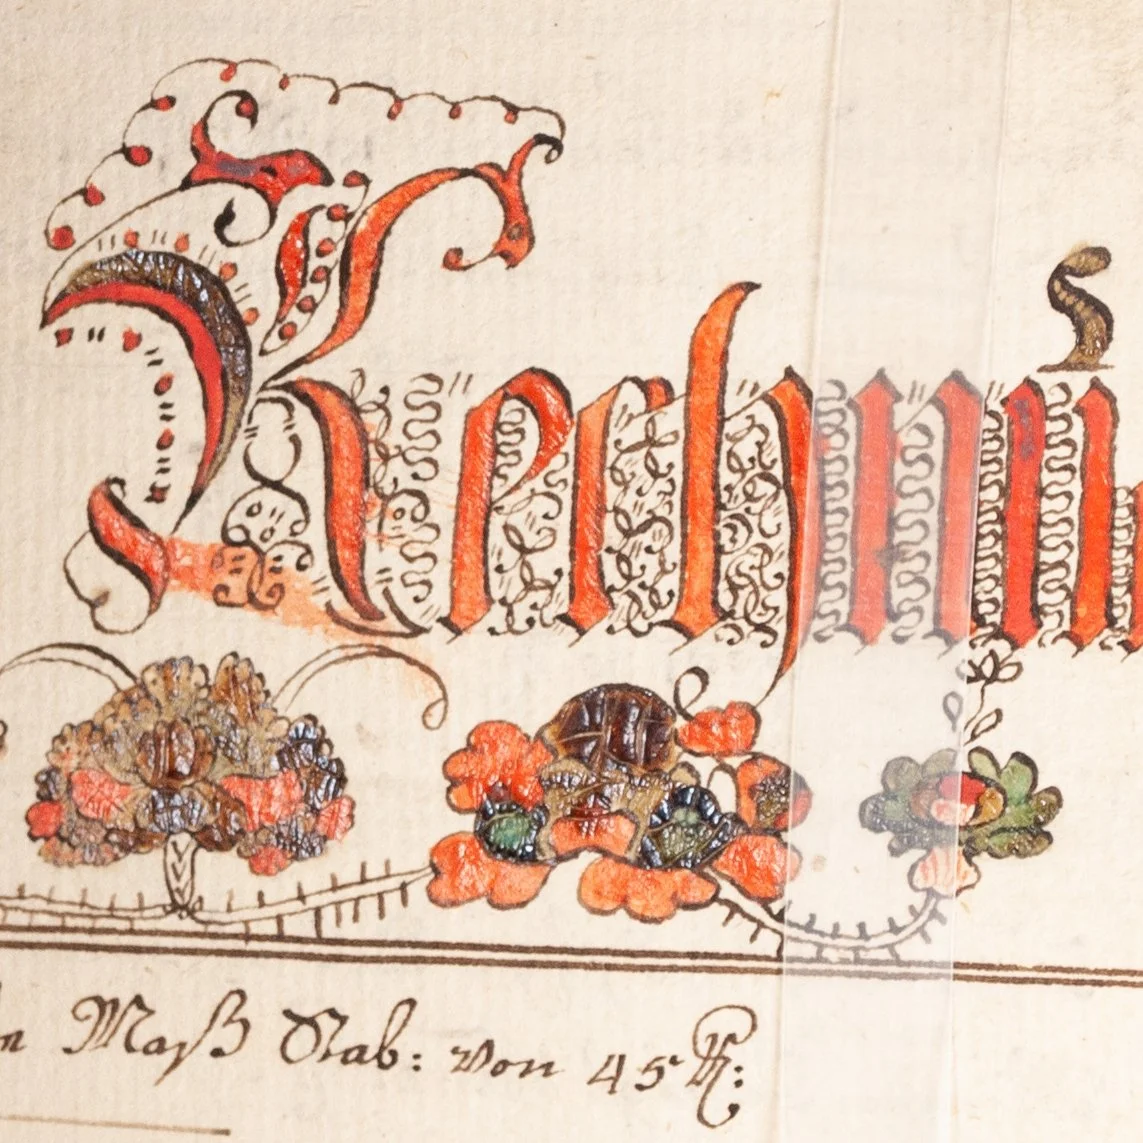 Rechnu
n Maß Stab: von 45